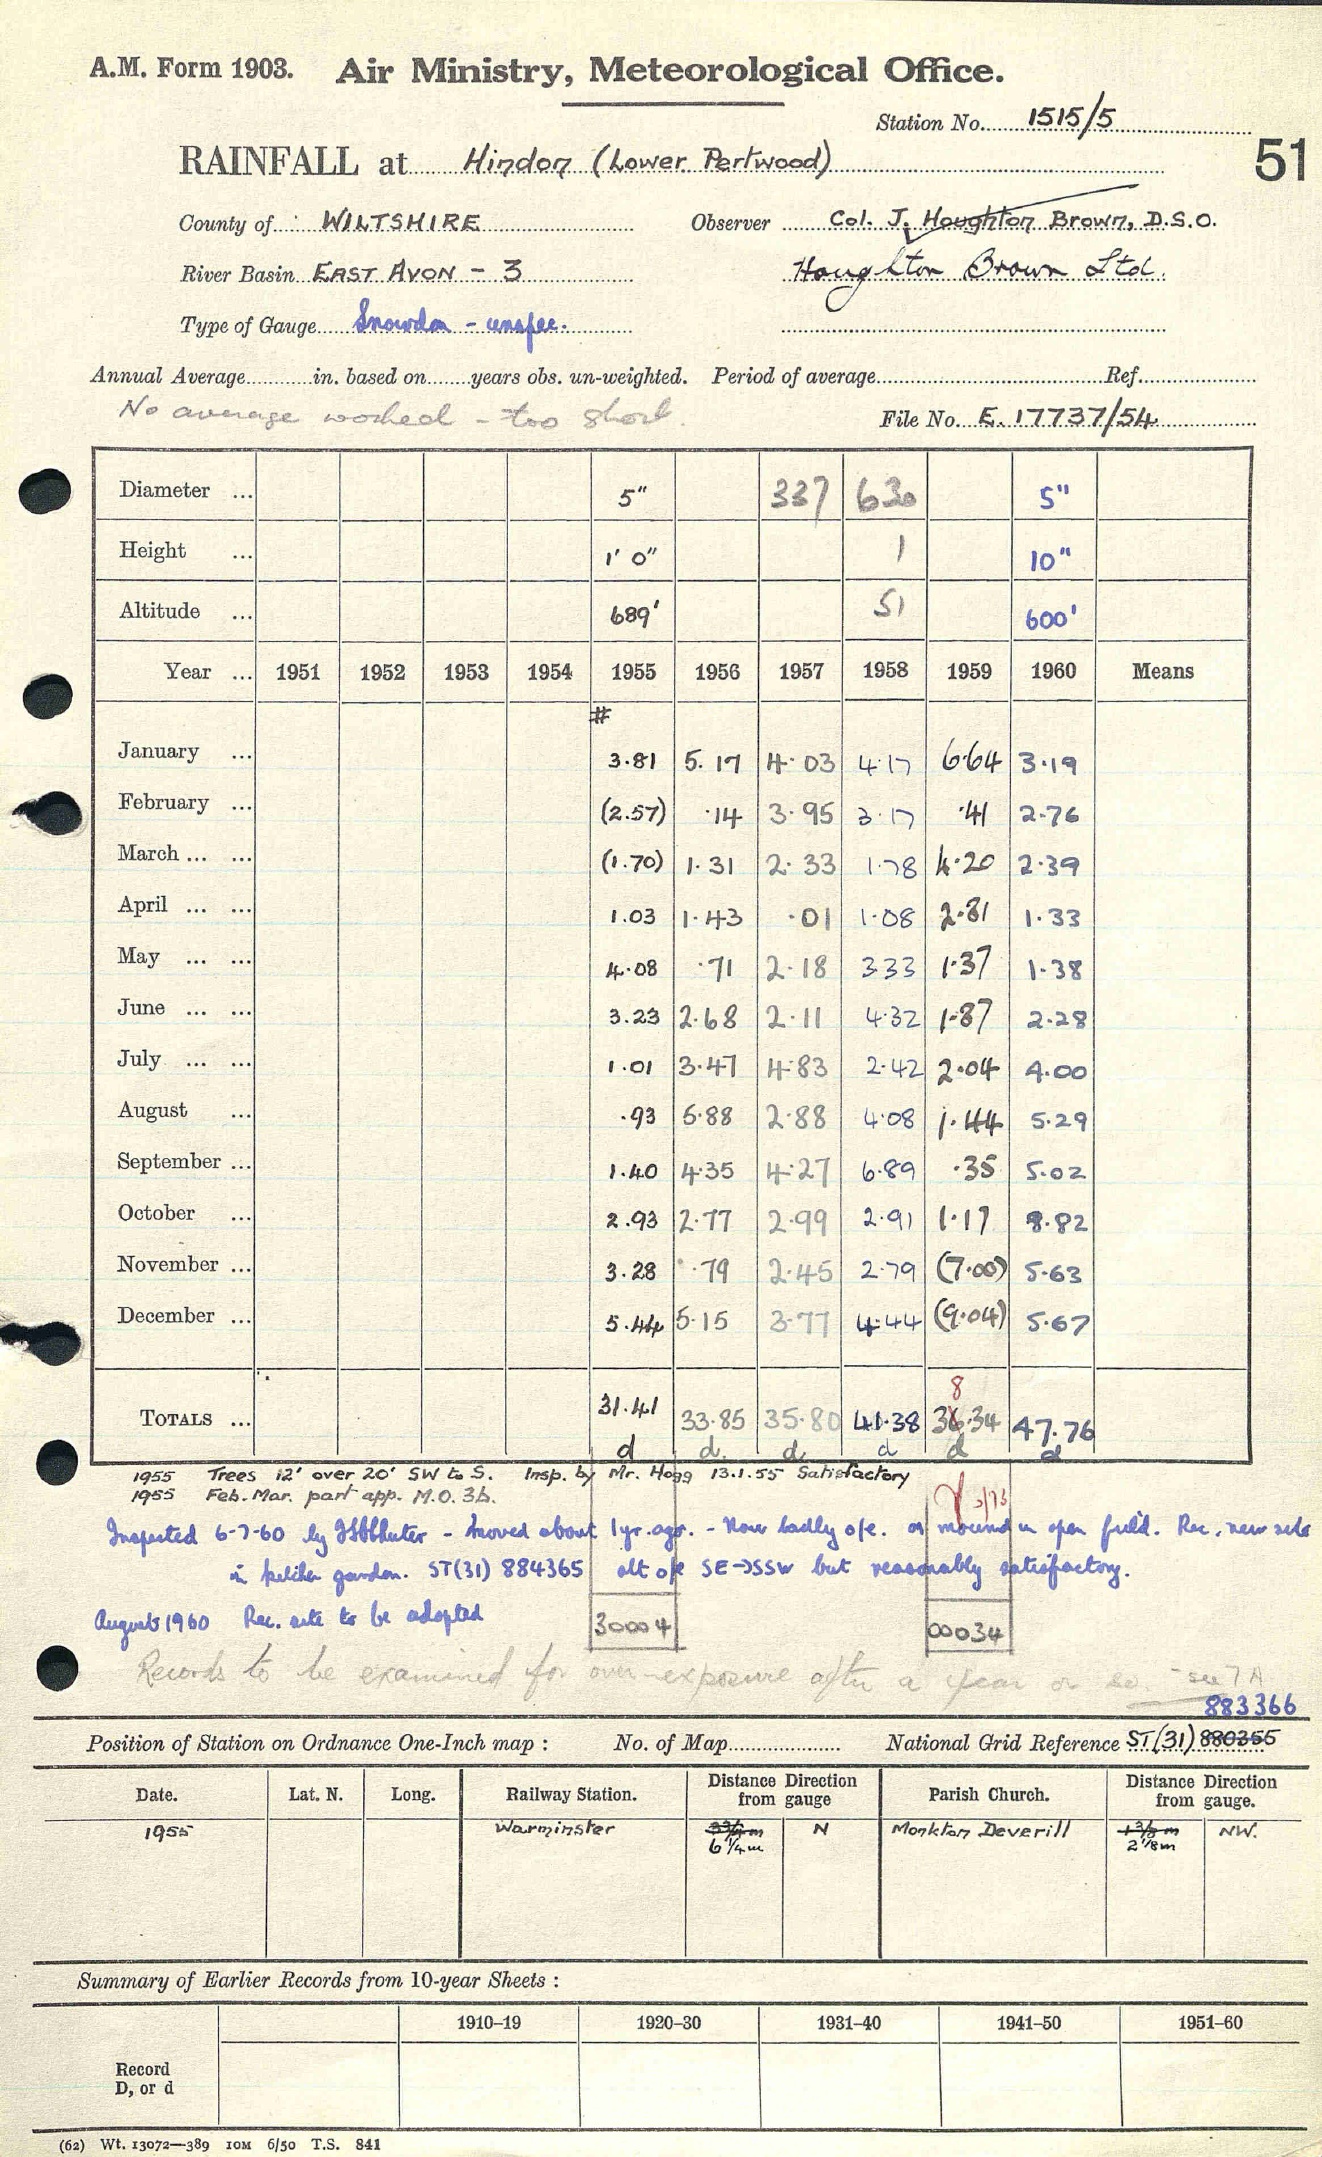 A.M. Form 1903. Air Ministry, Meteorological Office.
Station No. 1515/5
51
RAINFALL at Hindon (Lower Pertwood)
County of WILTSHIRE Observer Col. J. Houghton Brown, D.S.O.
River Basin EAST AVON - 3 Houghton Brown Ltd.
Type of Gauge Snowdon - unspec.
Annual Average in. based on years obs. un-weighted. Period of average Ref.
No average worked - too short. File No. E. 17737/54
Diameter ... 5" 337 630 5"
Height ... 1' 0" 1 10"
Altitude ... 689' 51 600'
Year ... 1951 1952 1953 1954 1955 1956 1957 1958 1959 1960 Means
#
January ... 3.81 5.17 4.03 4.17 6.64 3.19
February ... (2.57) .14 3.95 3.17 .41 2.76
March ... ... (1.70) 1.31 2.33 1.78 4.20 2.39
April ... ... 1.03 1.43 .01 1.08 2.81 1.33
May ... ... 4.08 .71 2.18 3.33 1.37 1.38
June ... ... 3.23 2.68 2.11 4.32 1.87 2.28
July ... ... 1.01 3.47 4.83 2.42 2.04 4.00
August ... .93 5.88 2.88 4.08 1.44 5.29
September ... 1.40 4.35 4.27 6.89 .35 5.02
October ... 2.93 2.77 2.99 2.91 1.17 8.82
November ... 3.28 .79 2.45 2.79 (7.00) 5.63
December ... 5.44 5.15 3.77 4.44 (9.04) 5.67
8
TOTALS ... 31.41 33.85 35.80 41.38 36.34 47.76
d d. d. d d d
1955 Trees 12' over 20' SW to S. Insp. by Mr. Hogg 13.1.55 Satisfactory
1955 Feb. Mar. part app. M.O. 3b.
Inspected 6-7-60 by - Moved about 1yr. ago. - Now badly o/e. on mound in open field. Rec. new site
in kitchen garden. ST(31) 884365 alt o/e SE→SSW but reasonably satisfactory.
August 1960 Rec. site to be adopted 30004 00034
Records to be examined for over-exposure after a year or so. - see 7A
883366
Position of Station on Ordnance One-Inch map : No. of Map National Grid Reference ST(31) 880355
Date. Lat. N. Long. Railway Station. Distance Direction from gauge Parish Church. Distance Direction from gauge.
1955 Warminster 6 1/4 m N Monkton Deverill 1 3/8 m 2 1/8 m NW.
Summary of Earlier Records from 10-year Sheets :
1910–19 1920–30 1931–40 1941–50 1951–60
Record
D, or d
(62) Wt. 13072—389 10M 6/50 T.S. 841